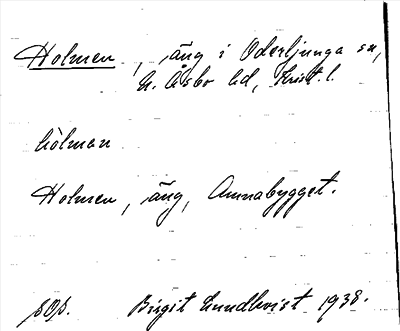 Holmen, äng i Oderljunga sn,
N. Åsbo hd, Krist. l.
hòlman
Holmen, äng, Annabygget.
sOp. Birgit Lundkvist 1938.